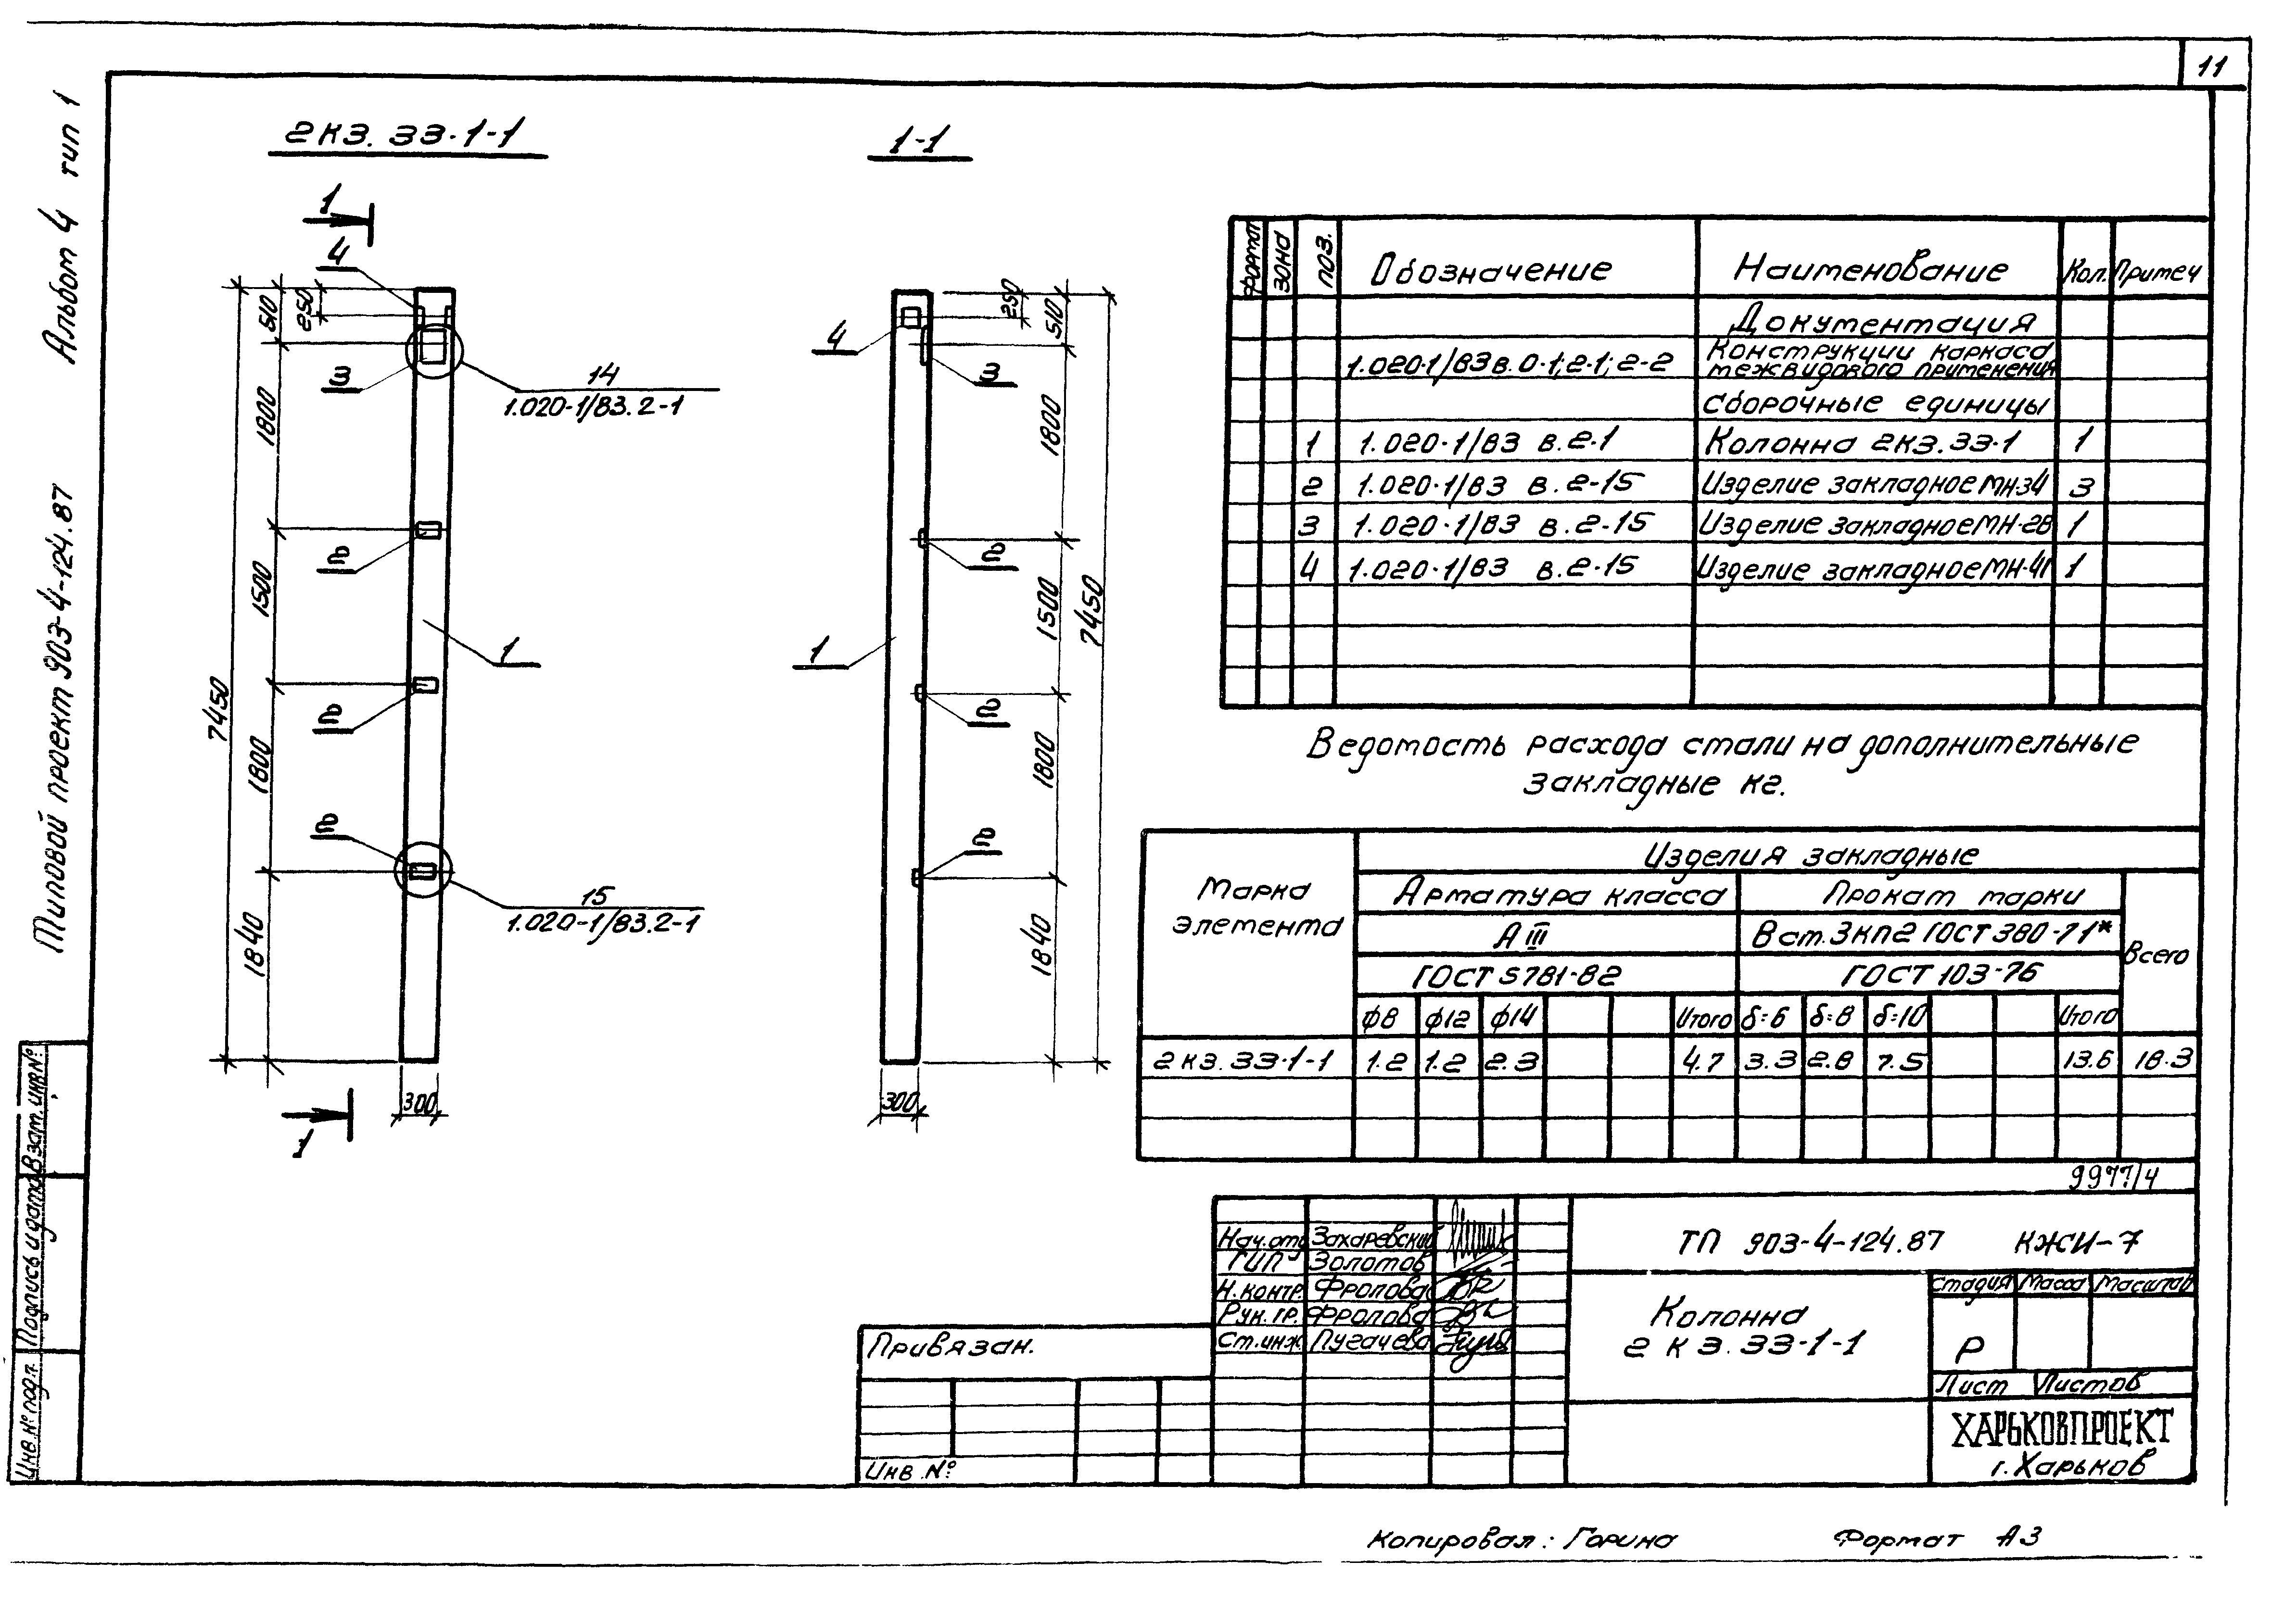 11
Альбом 4 тип 1
Типовой проект 903-4-124.87
Взам. инв №
Подпись и дата
Инв. № подл.
2КЗ. 33-1-1
1-1
1
4
510
250
3
14
1.020-1/83.2-1
1800
2
1500
1
7450
2
1800
2
15
1.020-1/83.2-1
1840
300
1
4
250
510
3
1800
2
1
1500
7450
2
1800
2
1840
300
Формат Зона Поз. Обозначение Наименование Кол. Примеч
Документация
1.020-1/83 в. 0-1; 2-1; 2-2 Конструкции каркаса
межвидового применения
Сборочные единицы
1 1.020-1/83 в. 2-1 Колонна 2КЗ.33-1 1
2 1.020-1/83 в. 2-15 Изделие закладное МН-34 3
3 1.020-1/83 в. 2-15 Изделие закладное МН-28 1
4 1.020-1/83 в. 2-15 Изделие закладное МН-41 1
Ведомость расхода стали на дополнительные
закладные кг.
Марка элемента
Изделия закладные
Арматура класса Прокат марки Всего
А III В ст. 3 кп2 ГОСТ 380-71*
ГОСТ 5781-82 ГОСТ 103-76
ф8 ф12 ф14 Итого δ=6 δ=8 δ=10 Итого
2КЗ.33-1-1 1.2 1.2 2.3 4.7 3.3 2.8 7.5 13.6 18.3
9977/4
Нач. отд Захаревский
ГИП Золотов
Н.контр. Фролова
Рук. гр. Фролова
Ст.инж. Пугачева
ТП 903-4-124.87 КЖИ-7
Колонна
2КЗ.33-1-1
Стадия Масса Масштаб
Р
Лист Листов
ХАРЬКОВПРОЕКТ
г. Харьков
Привязан.
Инв. №
Копировал: Горина Формат А3